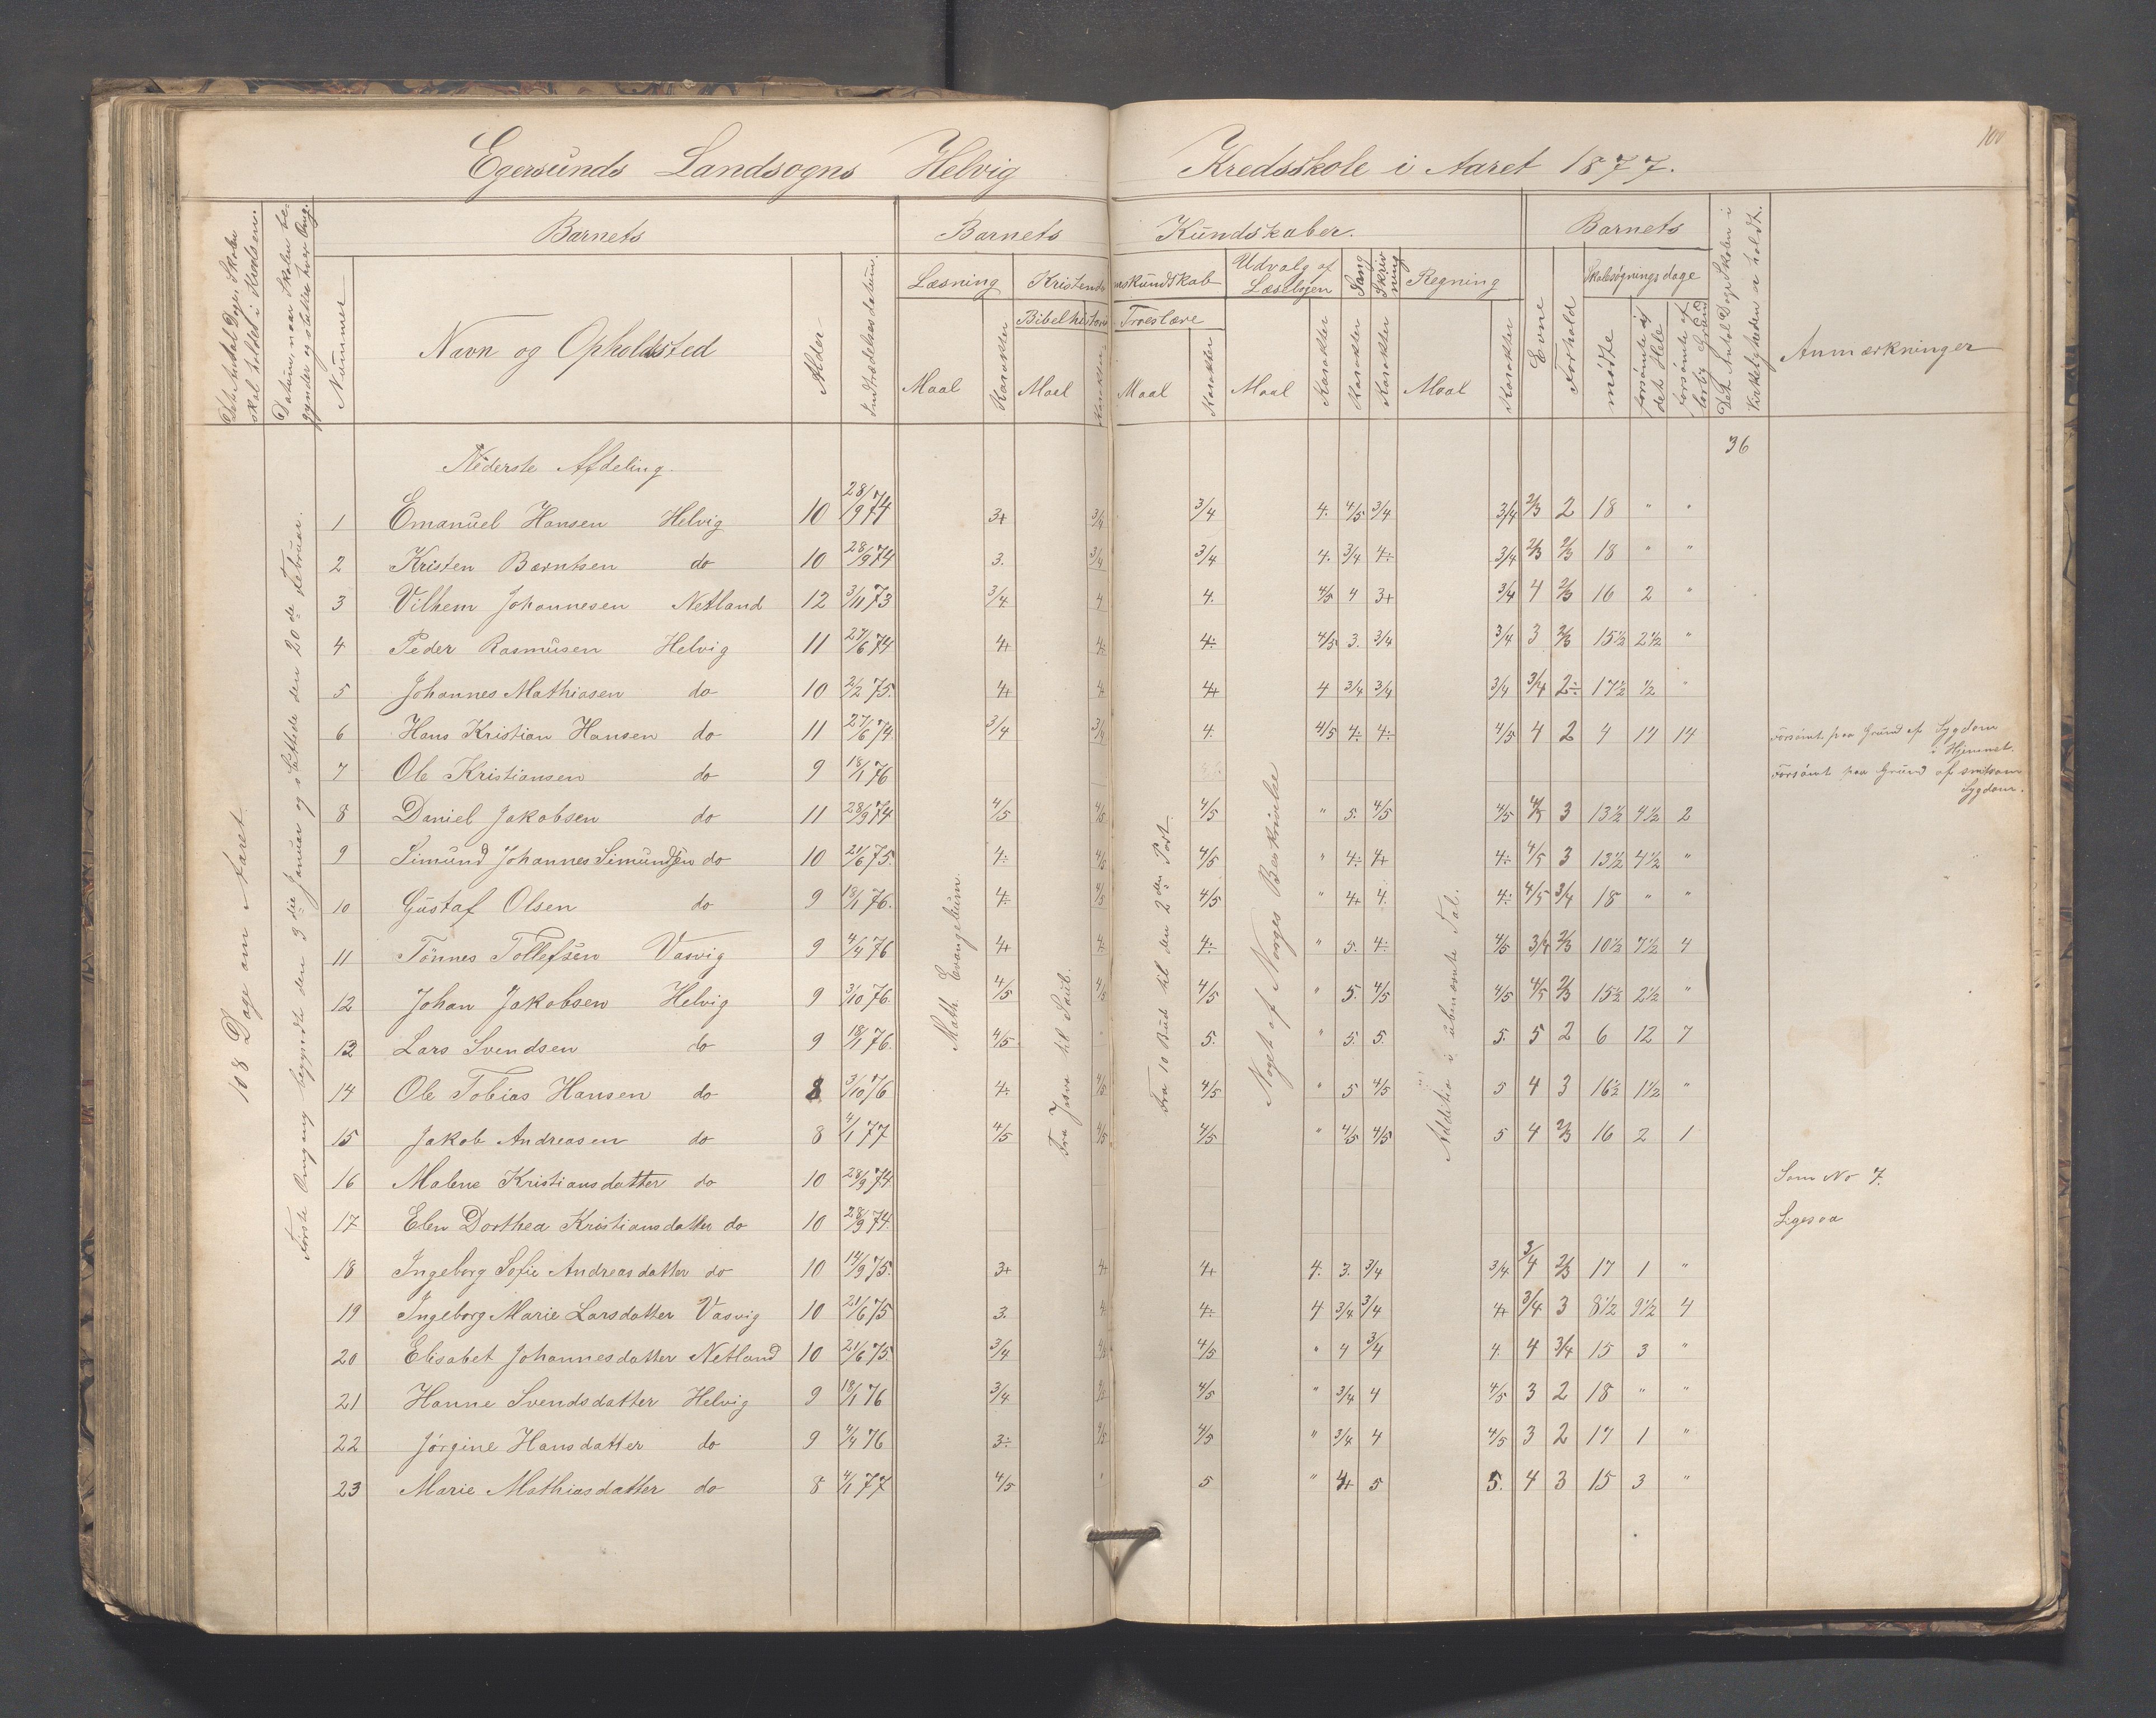 100
Egersunds Landsogns Helvig Kredsskole i Aaret 1877.
Det Antal Dage Skolen skal holdes i Kredsen.
Datum, naar Skolen begynder og slutter hver Omg.
Nummer
Barnets
Navn og Opholdssted
Alder
Indtrædelsesdatum.
Barnets Kundskaber.
Læsning
Maal
Karakter
Kristendomskundskab
Bibelhistorie
Maal
Karakter
Troeslære
Maal
Karakter
Udvalg af Læsebogen
Maal
Karakter
Sang
Karakter
Skrivning
Karakter
Regning
Maal
Karakter
Barnets
Evne
Forhold
Skolesøgningsdage
mødte
forsømte af det Hele
forsømte af lovlig Grund
Det Antal Dage Skolen i Virkeligheden er holdt.
Anmærkninger
108 Dage om Aaret
Første Omgang begyndte den 3die Januar og sluttede den 20de Februar.
Math. Evangelium.
Fra Josva til Saul.
Fra 10 Bud til den 2den Part.
Noget af Norges Beskrivelse
Addition i ubenævnte Tal.
Nederste Afdeling. 36
1 Emanuel Hansen Helvig 10 28/9 74 3+ 3/4 3/4 4. 4/5 3/4 3/4 2/3 2 18 " "
2 Kristen Bærntsen do 10 28/9 74 3. 3/4 3/4 4. 3/4 4÷ 3/4 2/3 2/3 18 " "
3 Vilhem Johannesen Netland 12 3/11 73 3/4 4 4. 4/5 4 3+ 3/4 4 2/3 16 2 "
4 Peder Rasmusen Helvig 11 27/6 74 4+ 4÷ 4÷ 4/5 3. 3/4 3/4 3 2/3 15½ 2½ "
5 Johannes Mathiasen do 10 2/2 75. 4+ 4 4+ 4 3/4 3/4 3/4 3/4 2÷ 17½ ½ "
6 Hans Kristian Hansen do 11 27/6 74 3/4 3/4 4. 4/5 4÷ 4÷ 4/5 4 2 4 14 14 Forsømt paa Grund af Sygdom i Hjemmet.
7 Ole Kristiansen do 9 18/1 76 Forsømt paa Grund af smitsom Sygdom.
8 Daniel Jakobsen do 11 28/9 74 4/5 4/5 4/5 " 5. 4/5 4/5 4/5 3 13½ 4½ 2
9 Simund Johannes Simundsen do 10 21/6 75. 4÷ 4/5 4/5 " 4÷ 4+ 4÷ 4/5 3 13½ 4½ "
10 Gustaf Olsen do 9 18/1 76. 4÷ 4/5 4/5 " 4+ 4. 4÷ 4/5 3/4 18 " "
11 Tønnes Tollefsen Vasvig 9 4/4 76 4+ 4÷ 4÷ " 5. 4÷ 4/5 3/4 2/3 10½ 7½ 4
12 Johan Jakobsen Helvig 9 3/10 76. 4/5 4/5 4/5 " 5. 4/5 4/5 4/5 2/3 15½ 2½ "
13 Lars Svendsen do 9 18/1 76. 4/5 " 5. " 5. 5. 5. 5 2 6 12 7
14 Ole Tobias Hansen do 8 3/10 76 4÷ 4/5 4/5 " 5 4/5 5 4 3 16½ 1½ "
15 Jakob Andreasen do 8 4/1 77 4/5 4/5 4/5 " 4/5 4/5 5 4 2/3 16 2 1
16 Malene Kristiansdatter do 10 28/9 74 Som No 7.
17 Elen Dorthea Kristiansdatter do 10 28/9 74. Ligesaa
18 Ingeborg Sofie Andreasdatter do 10 14/9 75. 3+ 4+ 4+ 4. 3. 3/4 3/4 3/4 2/3 17 1 "
19 Ingeborg Marie Larsdatter Vasvig 10 21/6 75 3. 4. 4÷ 4 3/4 3/4 4+ 3/4 3 8½ 9½ 4
20 Elisabet Johannesdatter Netland 10 21/6 75. 3/4 4/5 4/5 " 4 3/4 4. 4 3/4 15 3 "
21 Hanne Svendsdatter Helvig 9 18/1 76 3/4 4/5 4/5 " 3/4 4 4/5 3 2 18 " "
22 Jørgine Hansdatter do 9 4/4 76 3÷ 4/5 4/5 " 3/4 4 4/5 3 2 17 1 "
23 Marie Mathiasdatter do 8 4/1 77 4/5 " 5 " 4+ 5 5. 4 3 15 3 "